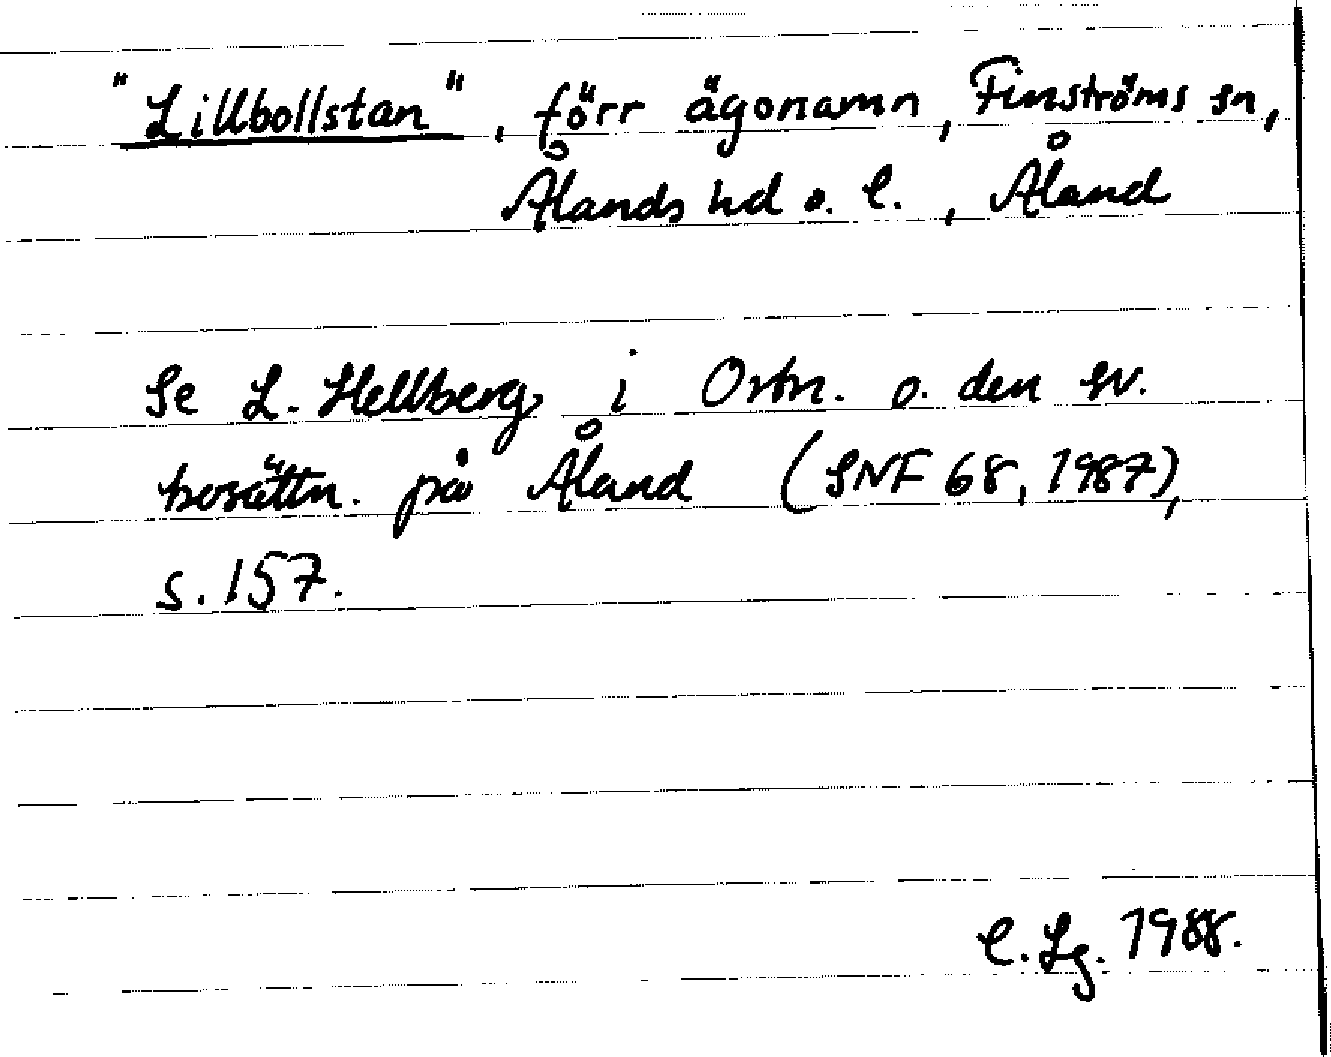 "Lillbollstan", förr ägonamn, Finströms sn,
Ålands hd o. l., Åland
Se L. Hellberg i Ortn. o. den sv.
bosättn. på Åland (SNF 68, 1987),
s. 157.
C. Lg. 1988.